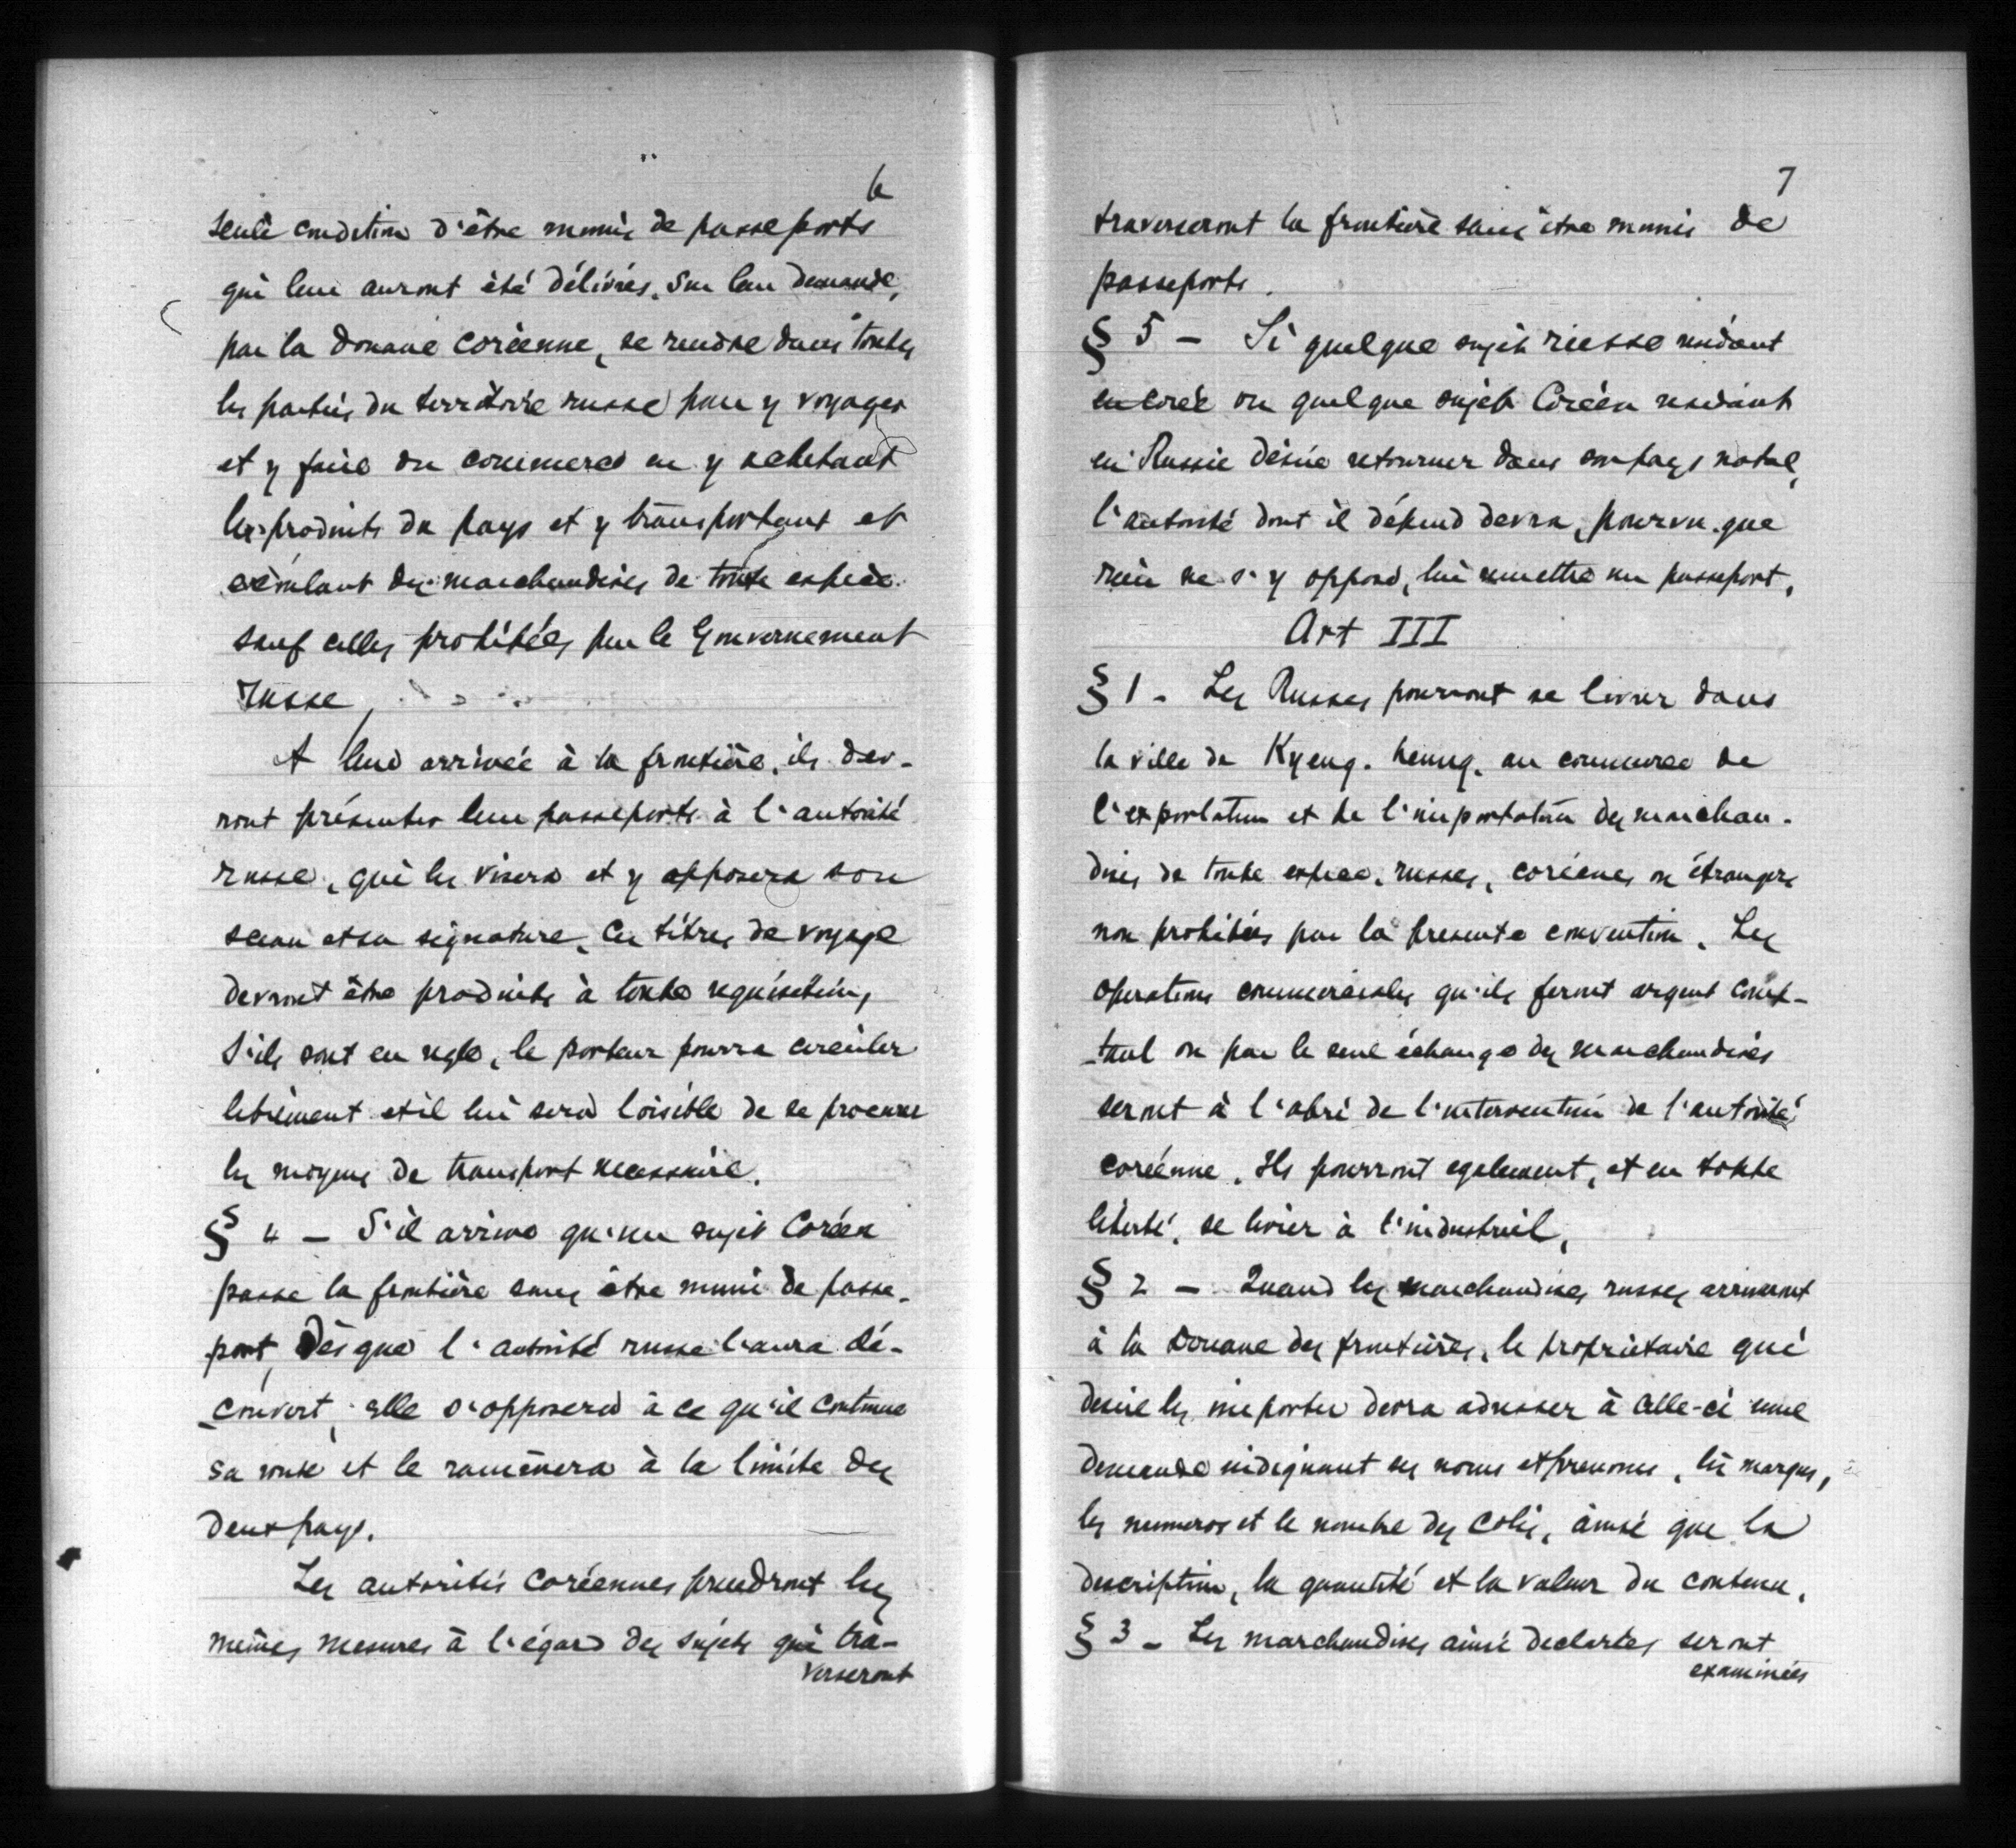 6
seule condition d'être munis de passeports
qui leur auront été délivrés, sur leur demande,
par la douane coréenne, se rendre dans toutes
les parties du territoire russe pour y voyager
et y faire du commerce en y achetant
les produits du pays et y transportant et
écoulant des marchandises de toute espèce
sauf celles prohibées par le Gouvernement
russe,
A leur arrivée à la frontière, ils dev-
ront présenter leur passeports à l'autorité
russe, qui les visera et y apposera son
sceau et sa signature, Ces titres de voyage
devront être produits à toute réquisition,
S'ils sont en regle, le porteur pourra circuler
librement et il lui sera loisible de se procurer
les moyens de transport necessaire.
§ 4 - S'il arrive qu'un sujet Coréen
passe la frontière sans être muni de passe-
port, Dès que l'autorité russe l'aura dé-
couvert, elle s'opposera à ce qu'il continue
sa route et le ramènera à la limite des
deux pays.
Les autorités coréennes prendront les
mêmes mesures à l'égard des sujets qui tra-
verseront
7
traverseront la frontière sans être munis de
passeports.
§ 5 - Si quelque sujet russe résidant
en Corée ou quelque sujet Coréen residant
en Russie désire retourner dans son pays natal,
l'autorité dont il dépend devra, pourvu que
rien ne s'y oppose, lui remettre un passeport.
Art III
§ 1 - Les Russes pourront se livrer dans
la ville de Kyeng. heung. au commerce de
l'exportation et de l'importation des marchan-
dises de toute espèce, russes, coréenes ou étrangers
non prohibées par la presente convention. Les
operations commerciales qu'ils feront argent comp-
-tant ou par le seul échange des marchandises
seront à l'abri de l'intervention de l'autorité
coréenne. Ils pourront egalement, et en toute
liberté, se livrer à l'industrie,
§ 2 - Quand les marchandises russes arriveront
à la Douane des frontières, le propriétaire qui
desire les importer devra adresser à celle-ci une
demande indiquant ses noms et prenoms, les marques,
les numeros et le nombre des colis, ainsi que la
description, la quantité et la valeur du contenu.
§ 3 - Les marchandises ainsi declarées seront
examinées